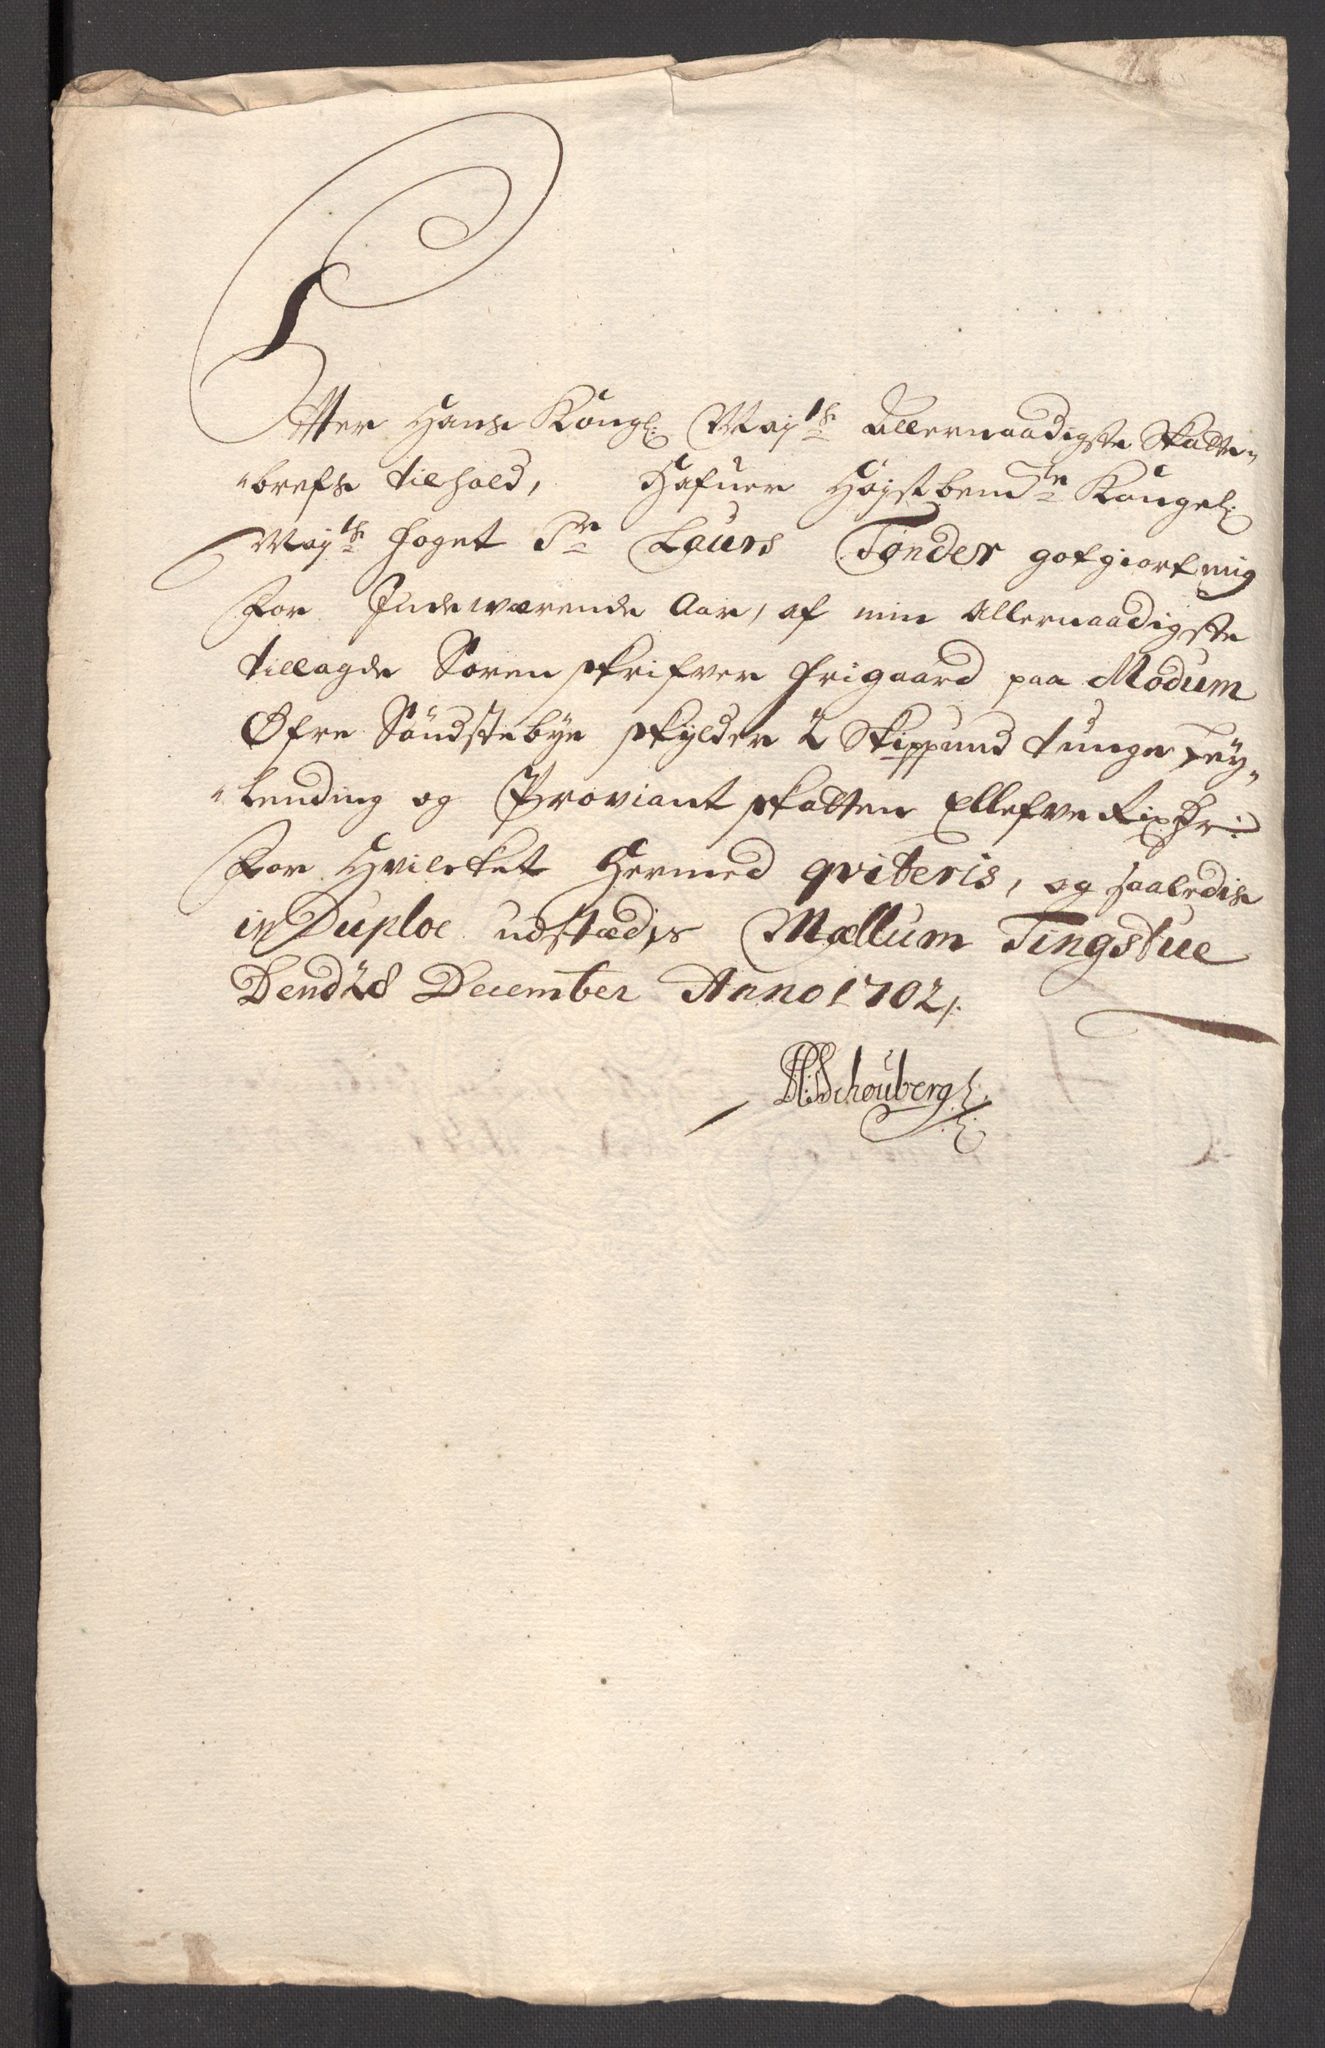 Efter Hans Kongl: Maÿts Allernaadigste Skatte-
brefs tilhold, Hafuer Højstbemte Kongel:
Maÿts foget Sr Laurs Tønder gotgiort mig
for Indeværende Aar, af min Allernaadigste
tillagde Sorenskrifver frigaard paa Modum
Øfre Söndstebye skylder 2 Skippund tunge Ley-
lending og Proviant skatten Ellefve Rixdr:
For Hvilcket Hermed qviteris, og saaledis
in Duploe udstædis Mællum Tingstue
Dend 28 December Anno 1702/.
H: Schouberg